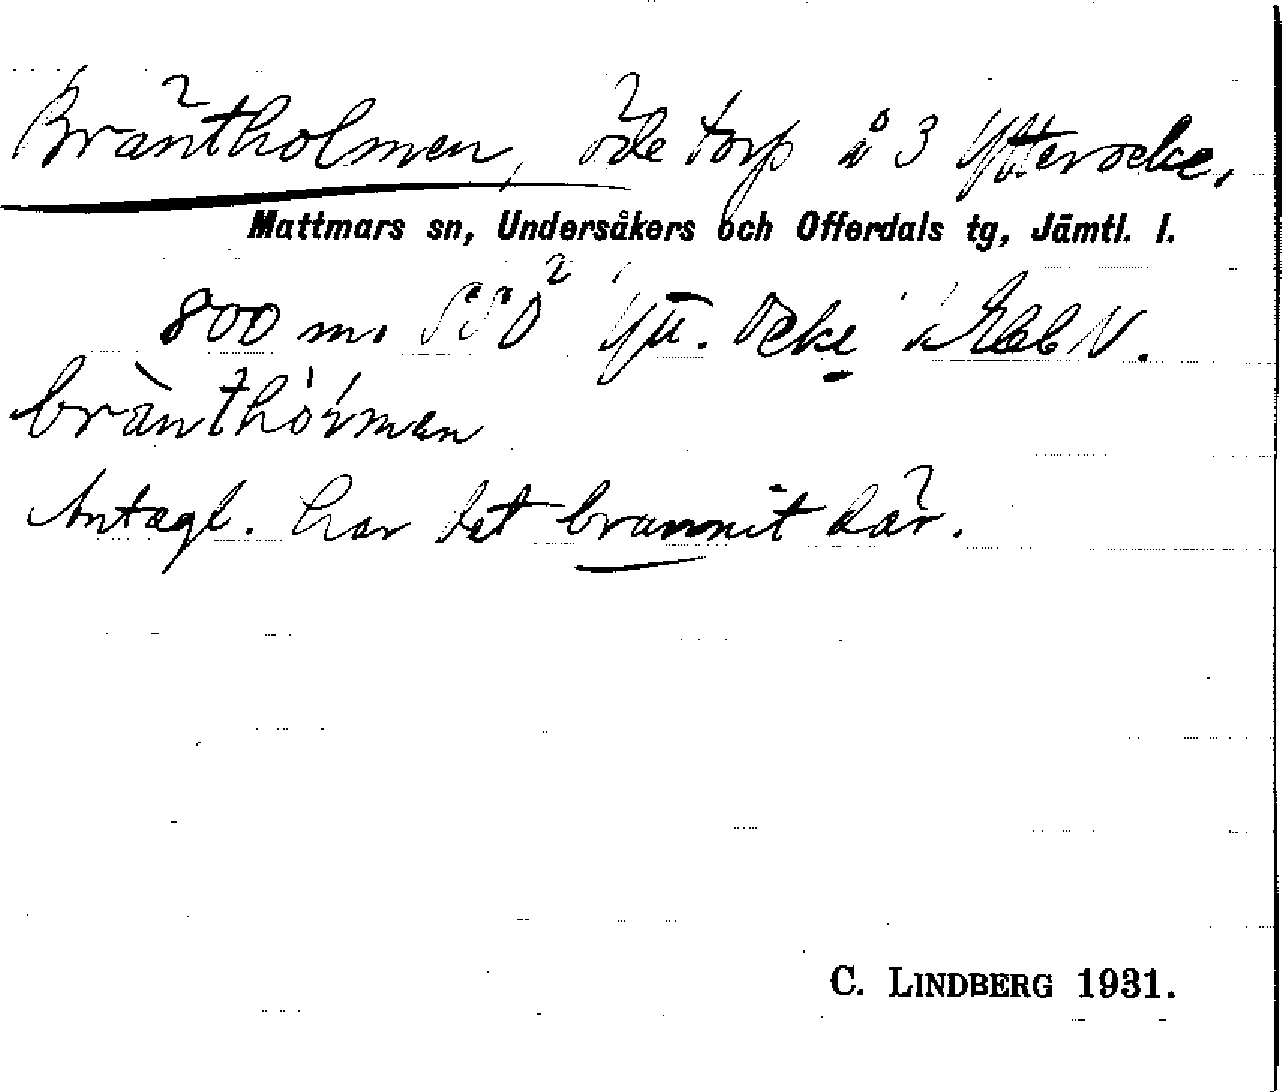 Bräntholmen, öde torp å 3 Ytterocke,
Mattmars sn, Undersåkers och Offerdals tg, Jämtl. l.
800 m. SSO Ytt. Ocke
bränthòɫmen
Antagl. har det brunnit där.
C. LINDBERG 1931.